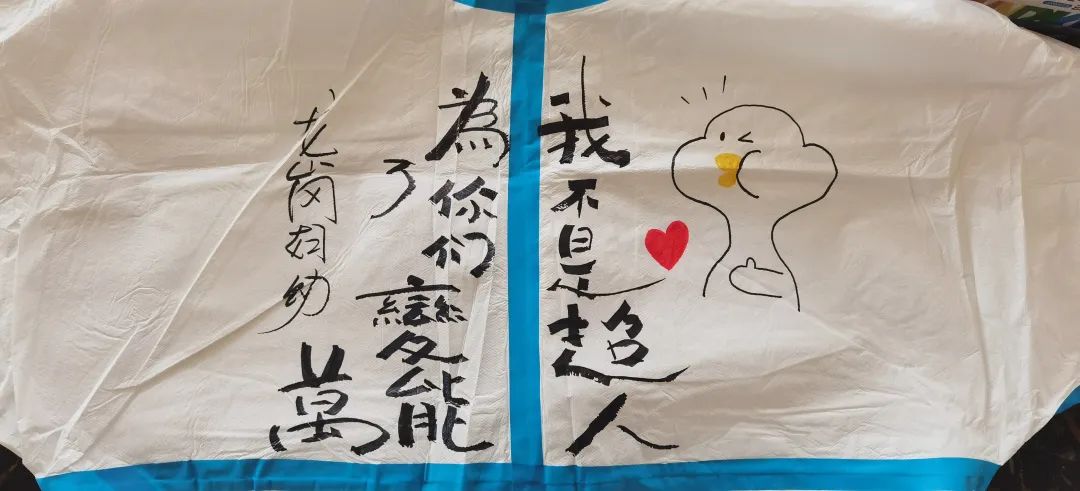 我不是超人
為了你們變萬能
龙岗妇幼